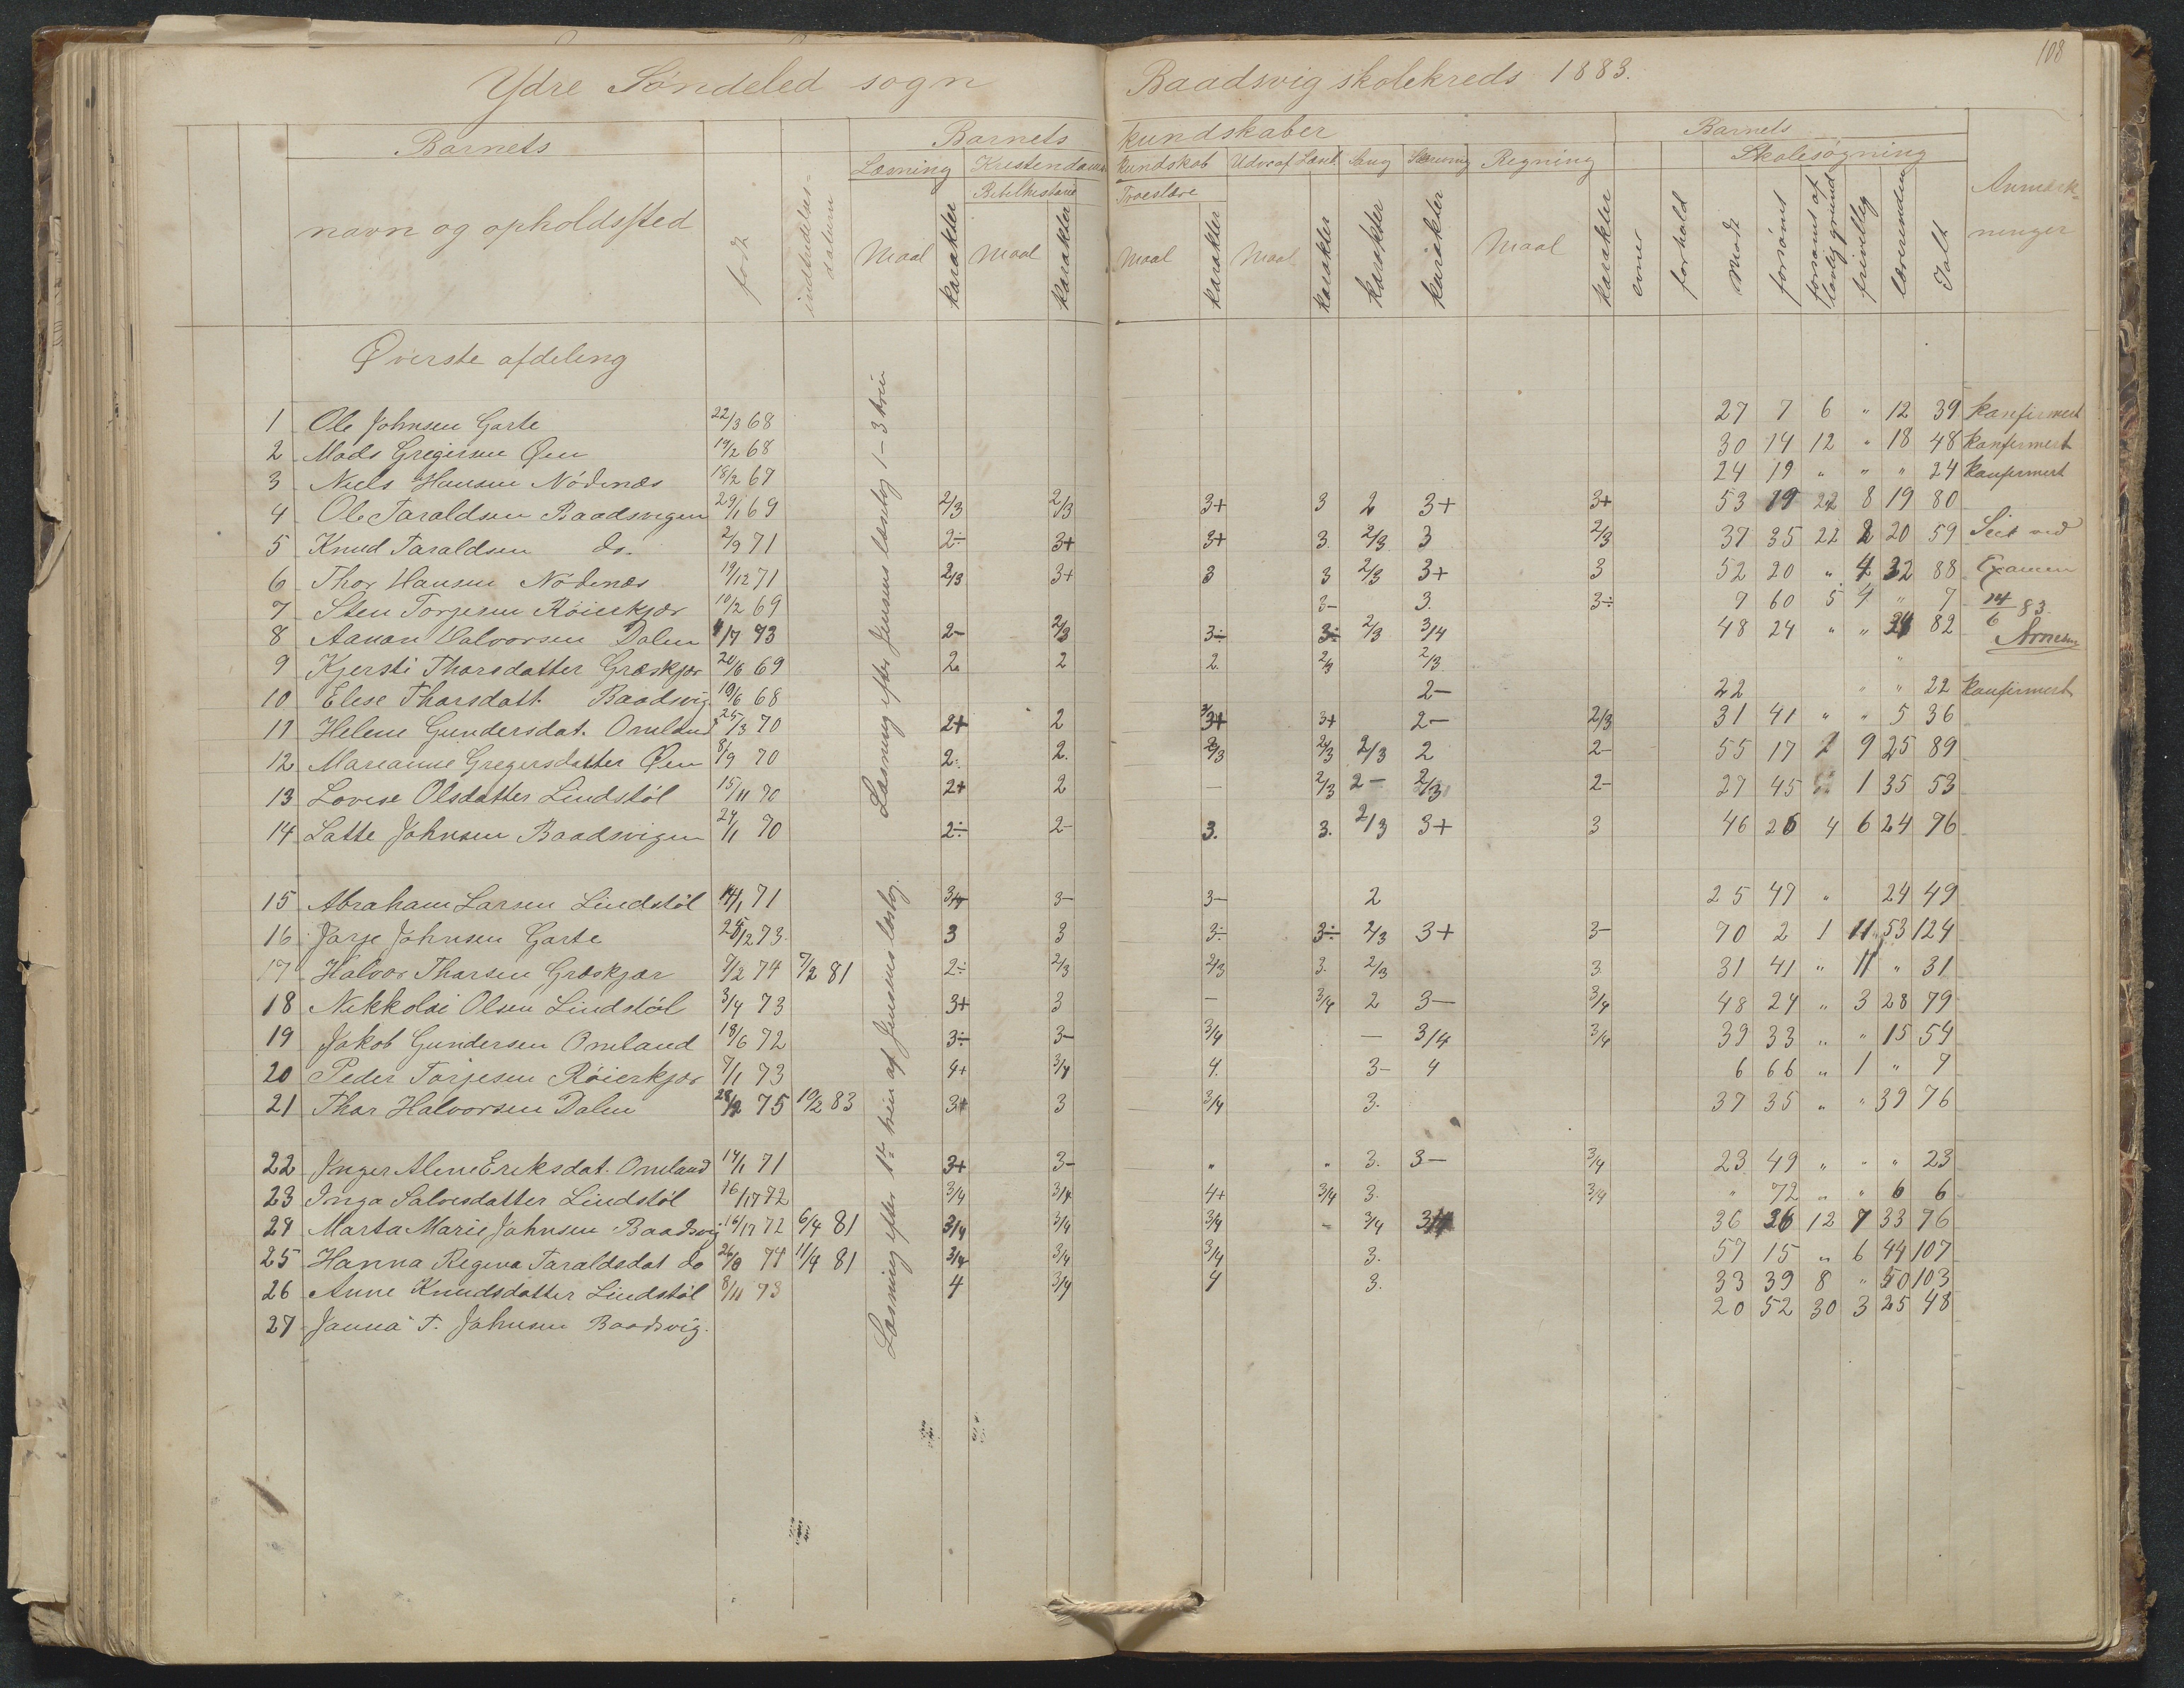 108
Ydre Søndeled sogn Baadsvig skolekreds 1883.
Barnets Barnets kundskaber Barnets
Læsning Kristendoms kundskab Udv. af Læseb. Sang Skrivning Regning Skolesøgning
Bibelhistorie Troeslære
navn og opholdssted født indtrædelses-datum Maal karakter Maal karakter Maal karakter Maal karakter karakter karakter Maal karakter evner forhold Mødt forsømt forsømt af lovlig grund frivillig Ialt Anmærkninger
Øverste afdeling
Læsning efter Jensens læsebog 1-3 trin
1 Ole Johnsen Garte 22/3 68 27 7 6 " 12 39 konfirmert
2 Mads Gregersen Øen 19/2 68 30 14 12 " 18 48 konfirmert
3 Niels Hansen Nødenæs 18/2 67 24 19 " " " 24 konfirmert
4 Ole Taraldsen Baadsvigen 29/1 69 2/3 2/3 3+ 3 2 3+ 3+ 53 19 22 8 19 80
5 Knud Taraldsen do. 2/9 71 2÷ 3+ 3+ 3. 2/3 3 2/3 37 35 22 2 20 59 Seet ved
6 Thor Hansen Nødenæs 19/12 71 2/3 3+ 3 3 2/3 3+ 3 52 20 " 4 32 88 Examen
7 Sten Torjesen Røierkjær 10/2 69 3- 3. 3÷ 9 60 5 4 " 7 14/6 83.
8 Aanon Halvorsen Dalen 4/17 73 2- 2/3 3÷ 3÷ 2/3 3/4 48 24 " " 34 82
9 Kjersti Thorsdatter Græskjær 20/6 69 2. 2 2. 2/3 2/3 "
10 Elese Thorsdatt. Baadsvig. 10/6 68 2- 22 " " 22 konfirmert
11 Helene Gundersdat. Omland 25/3 70 2+ 2 3+ 3+ 2- 2/3 31 41 " " 5 36
12 Mareanne Gregersdatter Øen 8/9 70 2. 2. 2/3 2/3 2/3 2 2- 55 17 2 9 25 89
13 Lovise Olsdatter Lindstøl 15/11 70 2+ 2 - 2/3 2- 2/3 2- 27 45 1 35 53
14 Latte Johnsen Baadsvigen 24/1 70 2÷ 2- 3. 3. 2/3 3+ 3 46 26 4 6 24 76
Læsning efter 1ste trin af Jensens læsebog.
15 Abraham Larsen Lindstøl 14/1 71 3/4 3- 3- 2 25 47 " 24 49
16 Jørje Johnsen Garte 28/12 73. 3 3 3÷ 3÷ 2/3 3+ 3- 70 2 1 11 53 124
17 Halvor Thorsen Græskjær 7/2 74 7/2 81 2÷ 2/3 2/3 3. 2/3 3. 31 41 " 11 " 31
18 Nekkolai Olsen Lindstøl 3/4 73 3+ 3 - 3/4 2 3- 3/4 48 24 " 3 28 79
19 Jakob Gundersen Omland 18/6 72 3÷ 3- 3/4 - 3/4 3/4 39 33 " " 15 54
20 Peder Torjesen Røierkjær 9/1 73 4+ 3/4 4. 3- 4 6 66 " 1 " 7
21 Thor Halvorsen Dalen 28/2 75 10/2 83 3+ 3 3/4 3. 37 35 " " 39 76
22 Jnger Alene Eriksdat. Omland 14/1 71 3+ 3- " " 3. 3- 3/4 23 49 " " " 23
23 Inga Salvesdatter Lindstøl 16/17 72 3/4 3/4 4+ 3/4 3. 3/4 " 72 " " 6 6
24 Marta Marie Johnsen Baadsvig 16/17 72 6/4 81 3/4 3/4 3/4 - 3/4 3/4 36 36 12 7 33 76
25 Hanna Regina Taraldsdat do 26/8 74 11/4 81 3/4 3/4 3/4 3. 57 15 " 6 44 107
26 Anne Knudsdatter Lindstøl 8/11 73 4 3/4 4 3. 33 39 8 " 50 103
27 Janna T. Johnsen Baadsvig. 20 52 30 3 25 48